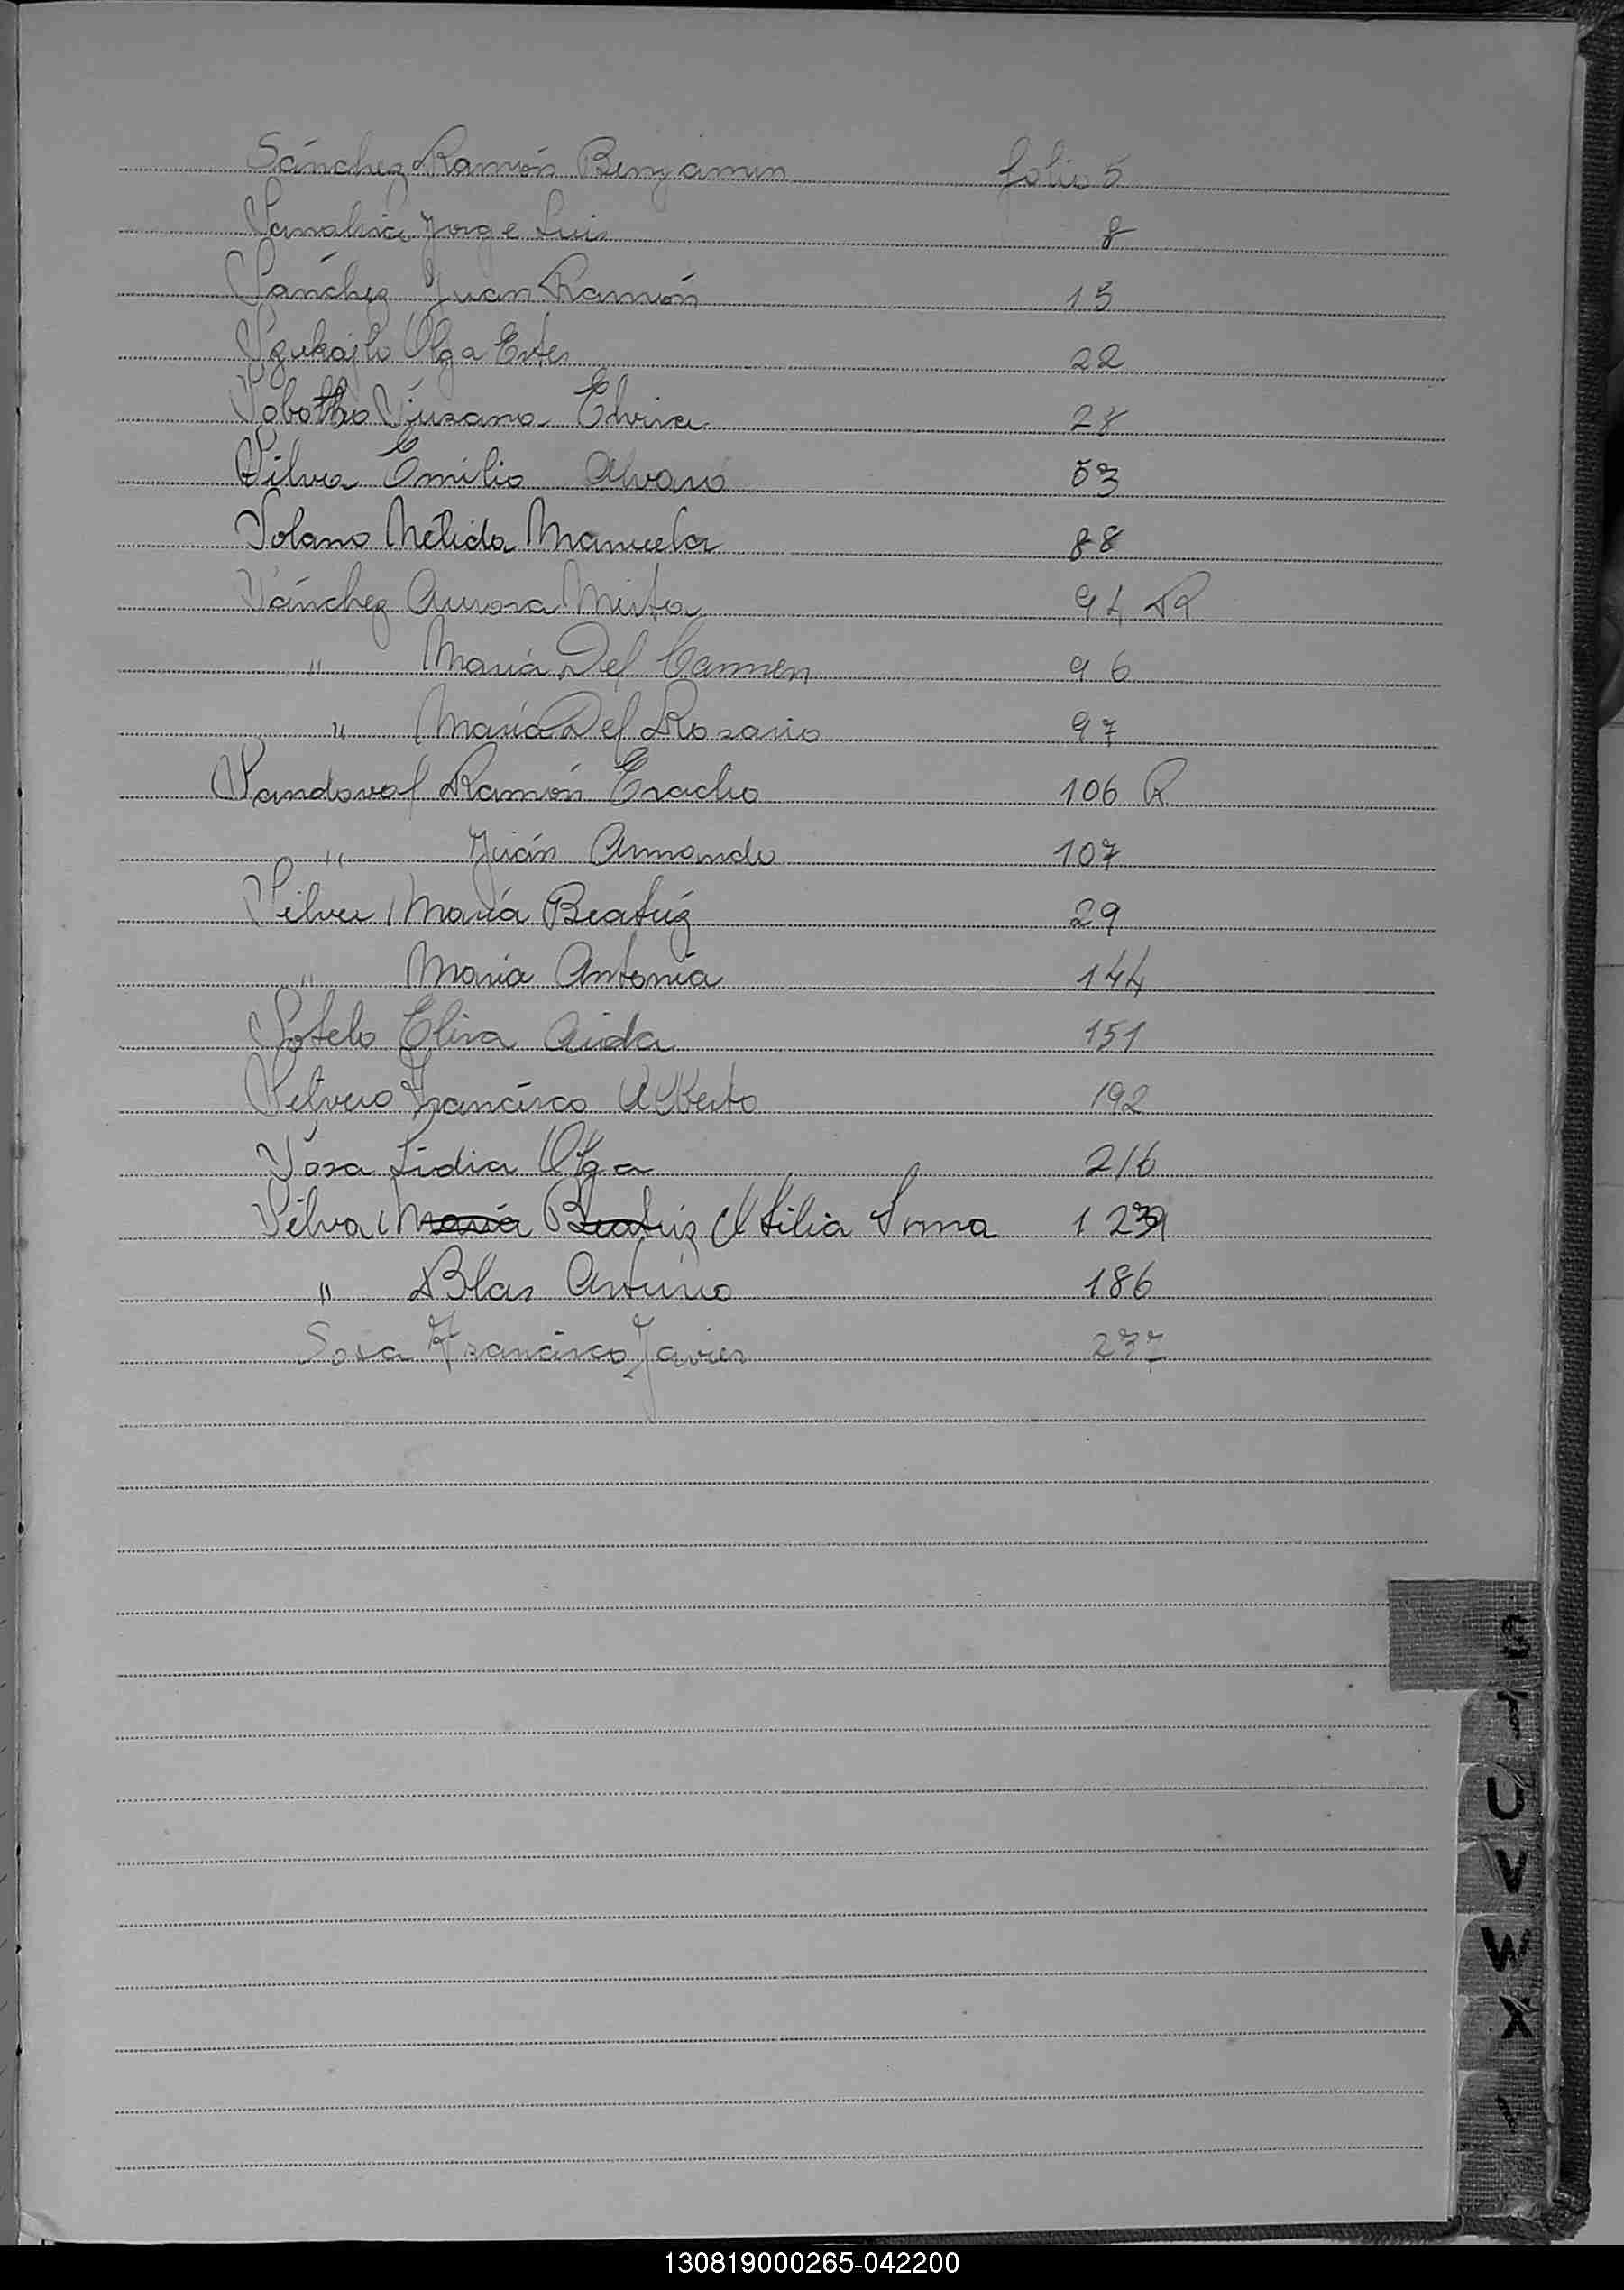 Sánchez Ramón Benjamin folio 5
Sanabria Jorge Luis 8
Sánchez Juan Ramón 15
Szukajlo Olga Ester 22
Sobotho Susana Elvira 28
Silva Emilio Alvaro 53
Solano Nélida Manuela 88
Sánchez Aurora Mirta 94 R
" María Del Carmen 96
" María Del Rosario 97
Sandoval Ramón Eraclio 106 R
" Juán Armando 107
Silva María Beatríz 29
" María Antonia 144
Sotelo Elisa Aida 151
Silvero Francisco Alberto 192
Sosa Lidia Olga 216
Silva María Beatriz Otilia Irma 123
" Blas Antonio 186
Sosa Francisco Javier 237
S
T
U
V
W
X
130819000265-042200